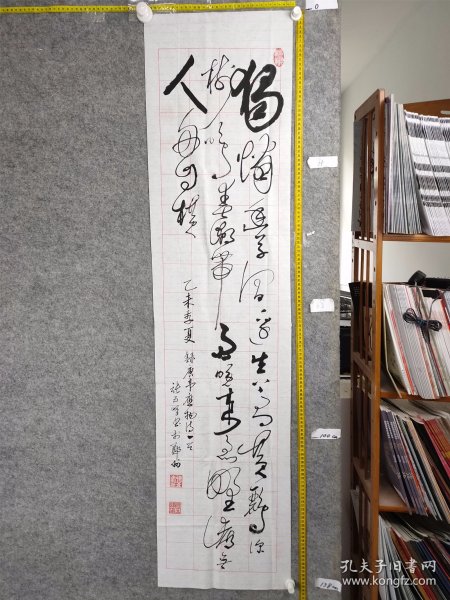 独怜幽草涧边生上有黄鹂深
树鸣春潮带雨晚来急野渡无
人舟自横
乙未季夏 录唐韦应物诗一首
于郑州
孔夫子旧书网
www.kongfz.com